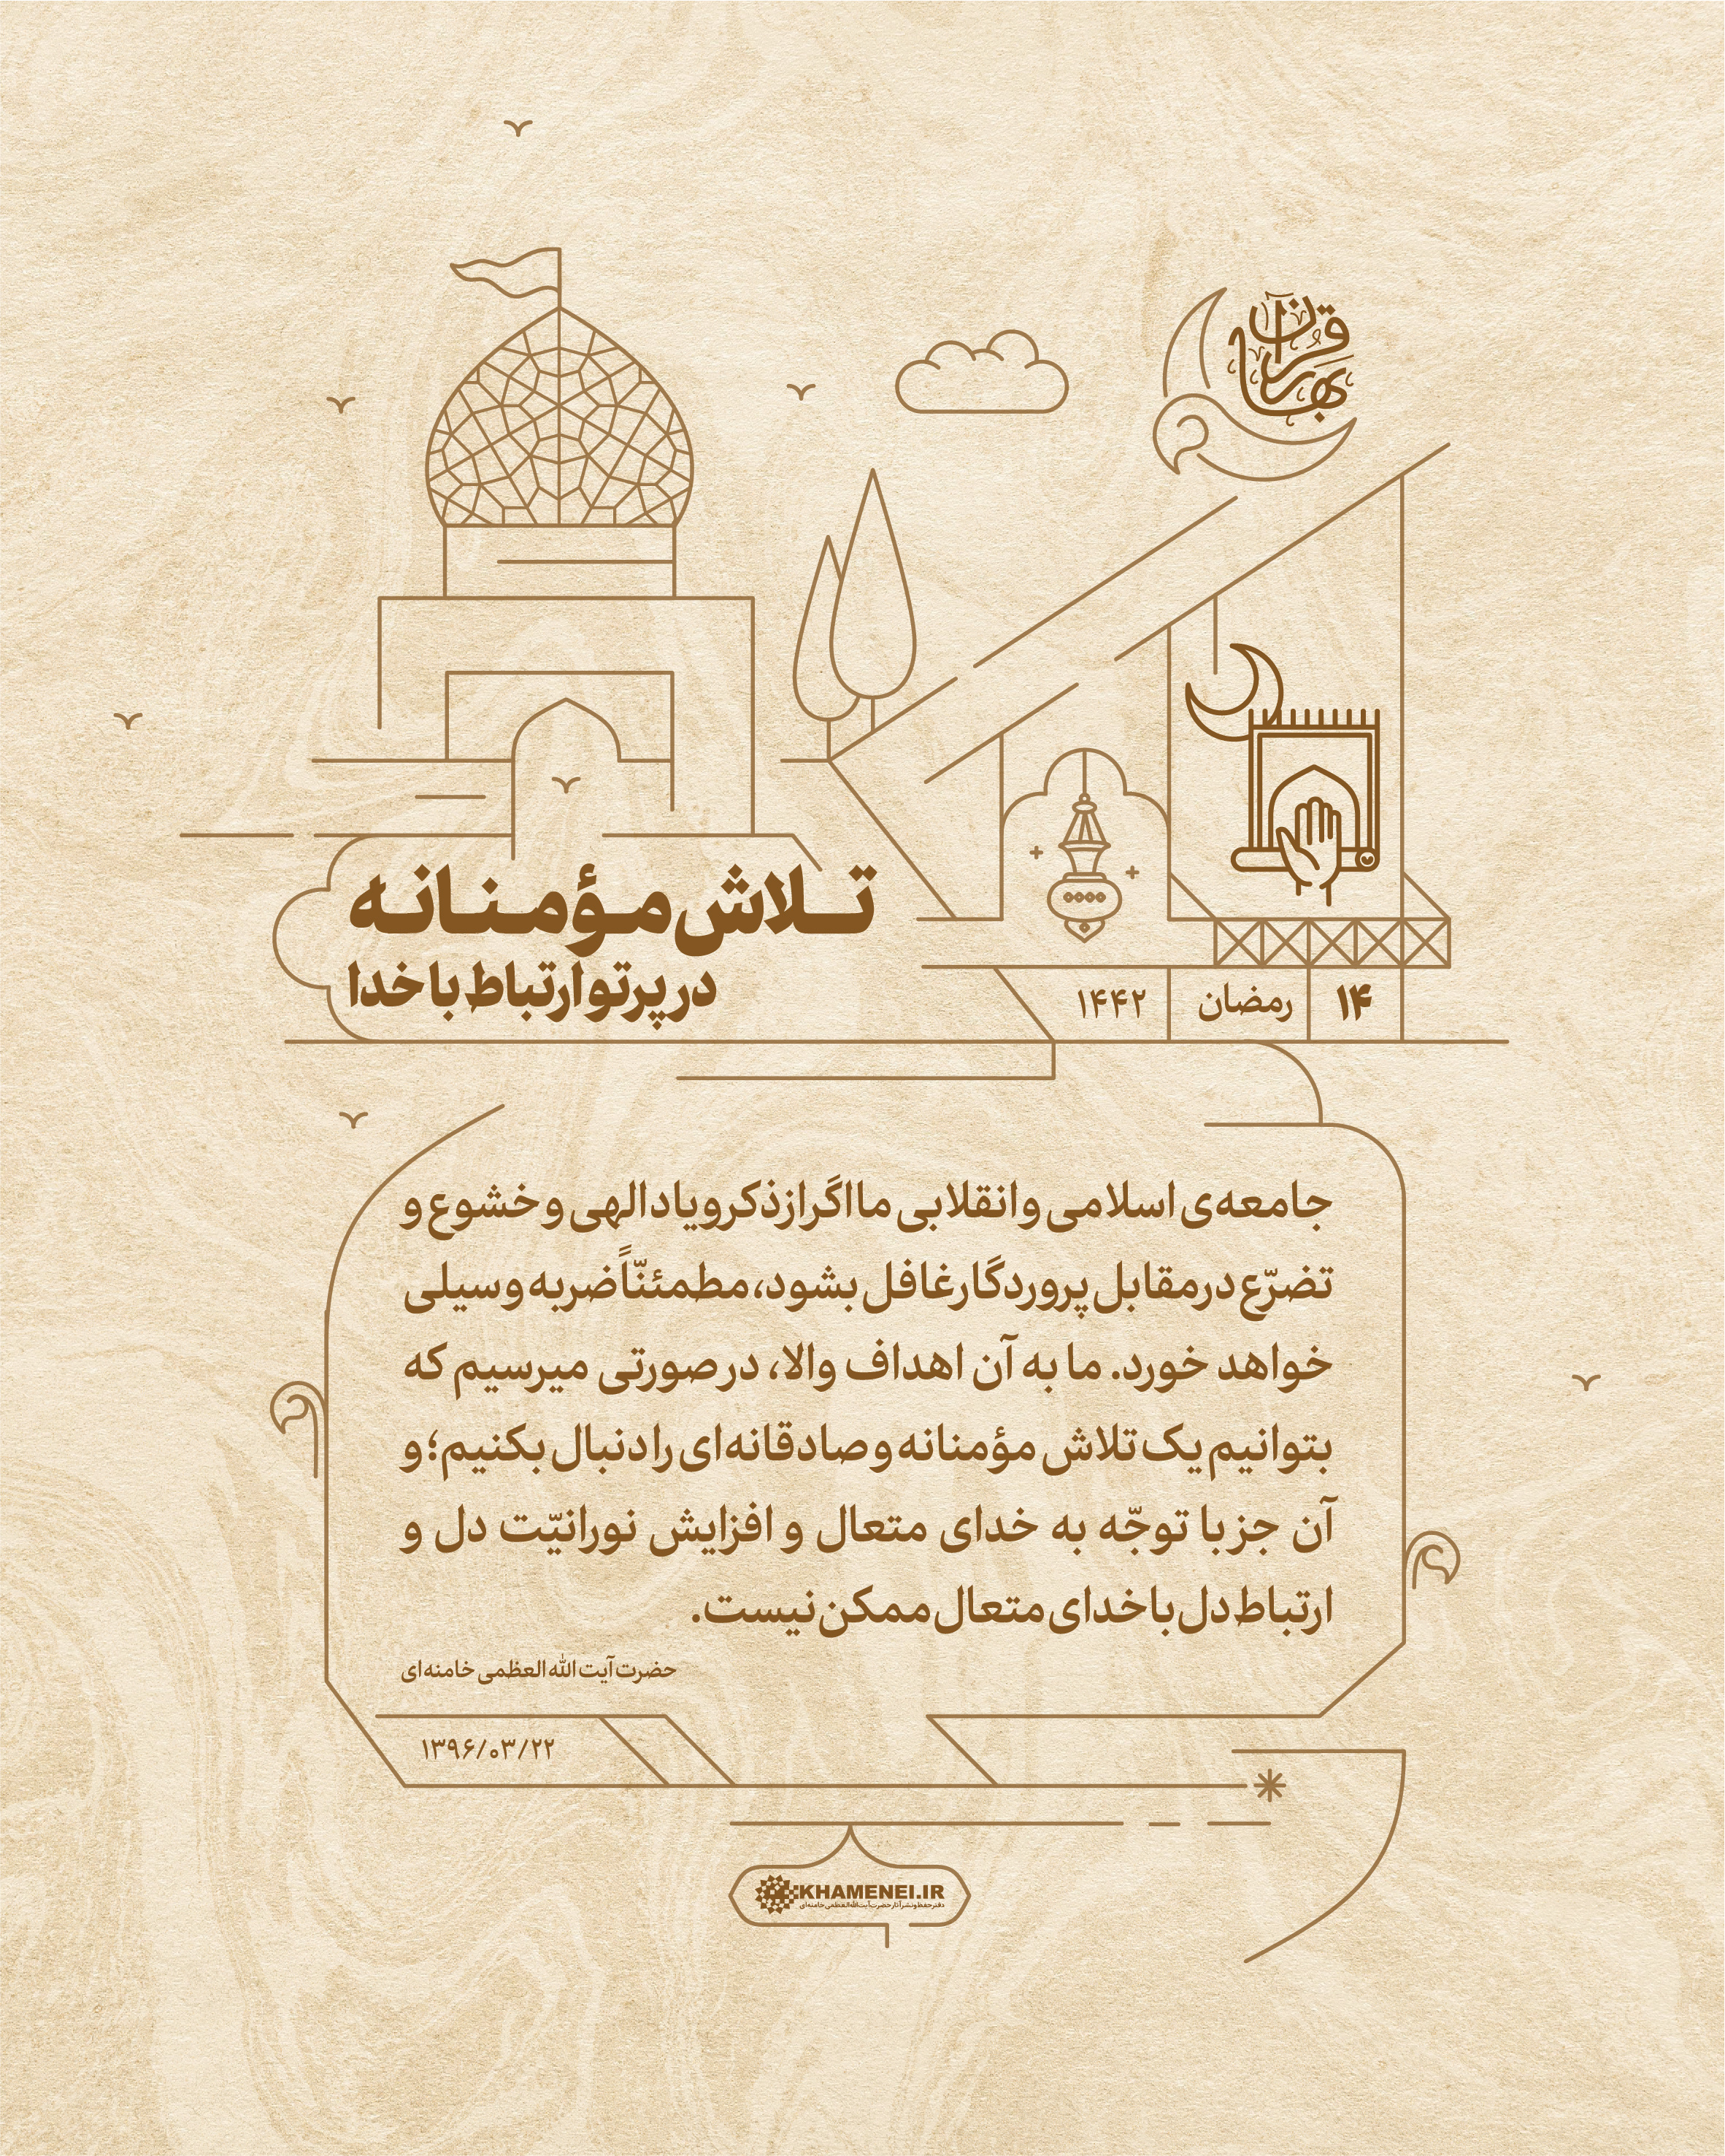 بهار قرآن
تلاش مؤمنانه
در پرتو ارتباط با خدا
۱۴
رمضان
۱۴۴۲
جامعه‌ی اسلامی و انقلابی ما اگر از ذکر و یاد الهی و خشوع و
تضرّع در مقابل پروردگار غافل بشود، مطمئنّاً ضربه و سیلی
خواهد خورد. ما به آن اهداف والا، در صورتی میرسیم که
بتوانیم یک تلاش مؤمنانه و صادقانه‌ای را دنبال بکنیم؛ و
آن جز با توجّه به خدای متعال و افزایش نورانیّت دل و
ارتباط دل با خدای متعال ممکن نیست.
حضرت آیت الله العظمی خامنه‌ای
۱۳۹۶/۰۳/۲۲
KHAMENEI.IR
دفتر حفظ و نشر آثار حضرت آیت‌الله العظمی خامنه‌ای